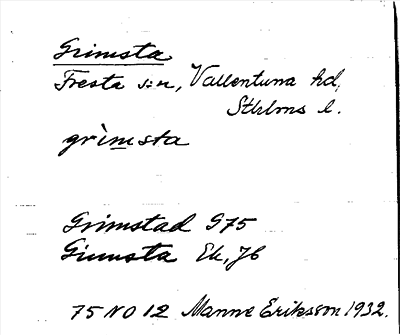 Grimsta
Fresta s:n, Vallentuna hd,
Sthlms l.
grìmsta
Grimstad G75
Grimsta Ek, Jb
75 NO 12 Manne Eriksson 1932.